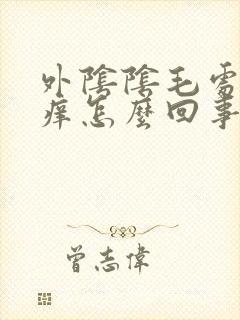 外陰陰毛處
癢怎麼回事
曾志偉